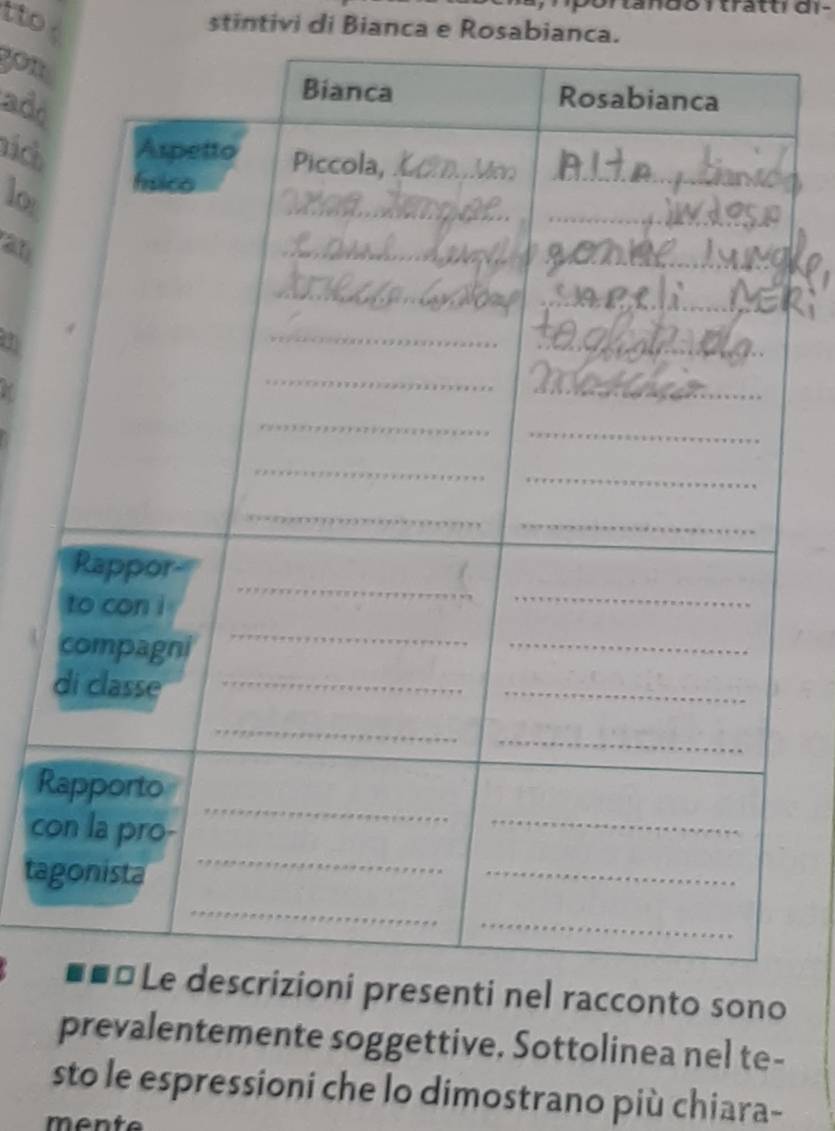 riportando i tratti di-
stintivi di Bianca e Rosabianca.
Bianca
Rosabianca
Aspetto
fisico
Piccola, con un
e due lunghe
trecce
Alta, timida
, indossa
gonne lunghe,
capeli NERi
tagliati da
maschio
Rappor-
to con i
compagni
di classe
Rapporto
con la pro-
tagonista
Le descrizioni presenti nel racconto sono
prevalentemente soggettive. Sottolinea nel te-
sto le espressioni che lo dimostrano più chiara-
mente